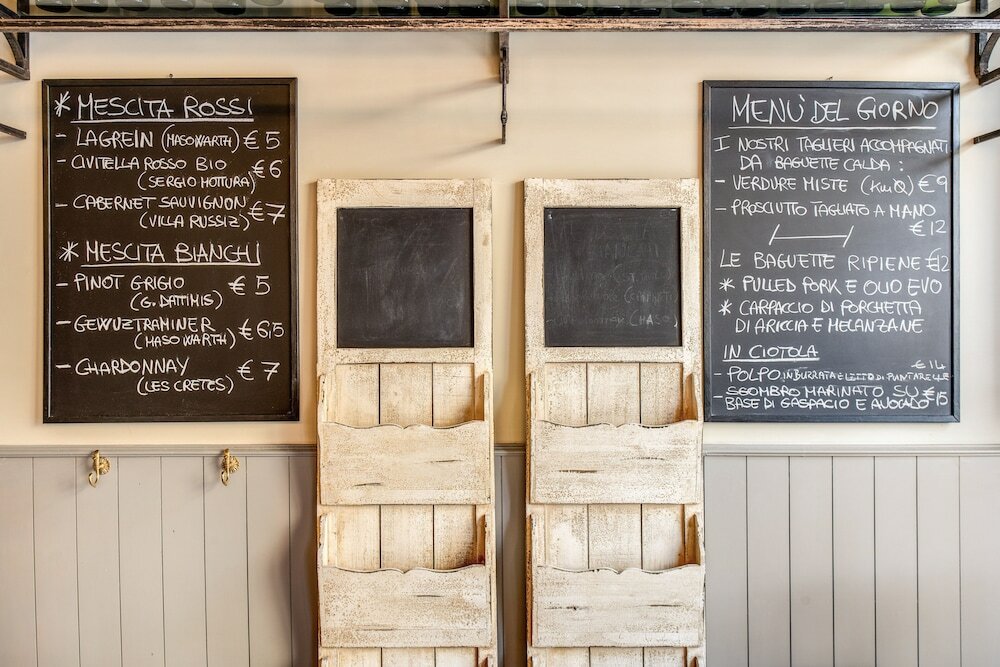 * MESCITA ROSSI
- LAGREIN (MASO WARTH) € 5
- CIVITELLA ROSSO BIO
(SERGIO MOTTURA) € 6
- CABERNET SAUVIGNON
(VILLA RUSSIZ) € 7
* MESCITA BIANCHI
- PINOT GRIGIO € 5
(G. DATTIMIS)
- GEWUZTRAMINER
(MASO WARTH) € 6,5
- CHARDONNAY
(LES CRETES) € 7
MENÙ DEL GIORNO
I NOSTRI TAGLIERI ACCOMPAGNATI
DA BAGUETTE CALDA :
- VERDURE MISTE (KmØ) € 9
- PROSCIUTTO TAGLIATO A MANO
€ 12
LE BAGUETTE RIPIENE € 12
* PULLED PORK E OLIO EVO
* CARPACCIO DI PORCHETTA
DI ARICCIA E MELANZANE
IN CIOTOLA
€ 14
- POLPO IN BURRATA E LETTO DI PUNTARELLE
- SGOMBRO MARINATO SU € 15
BASE DI GASPACIO E AVOCADO